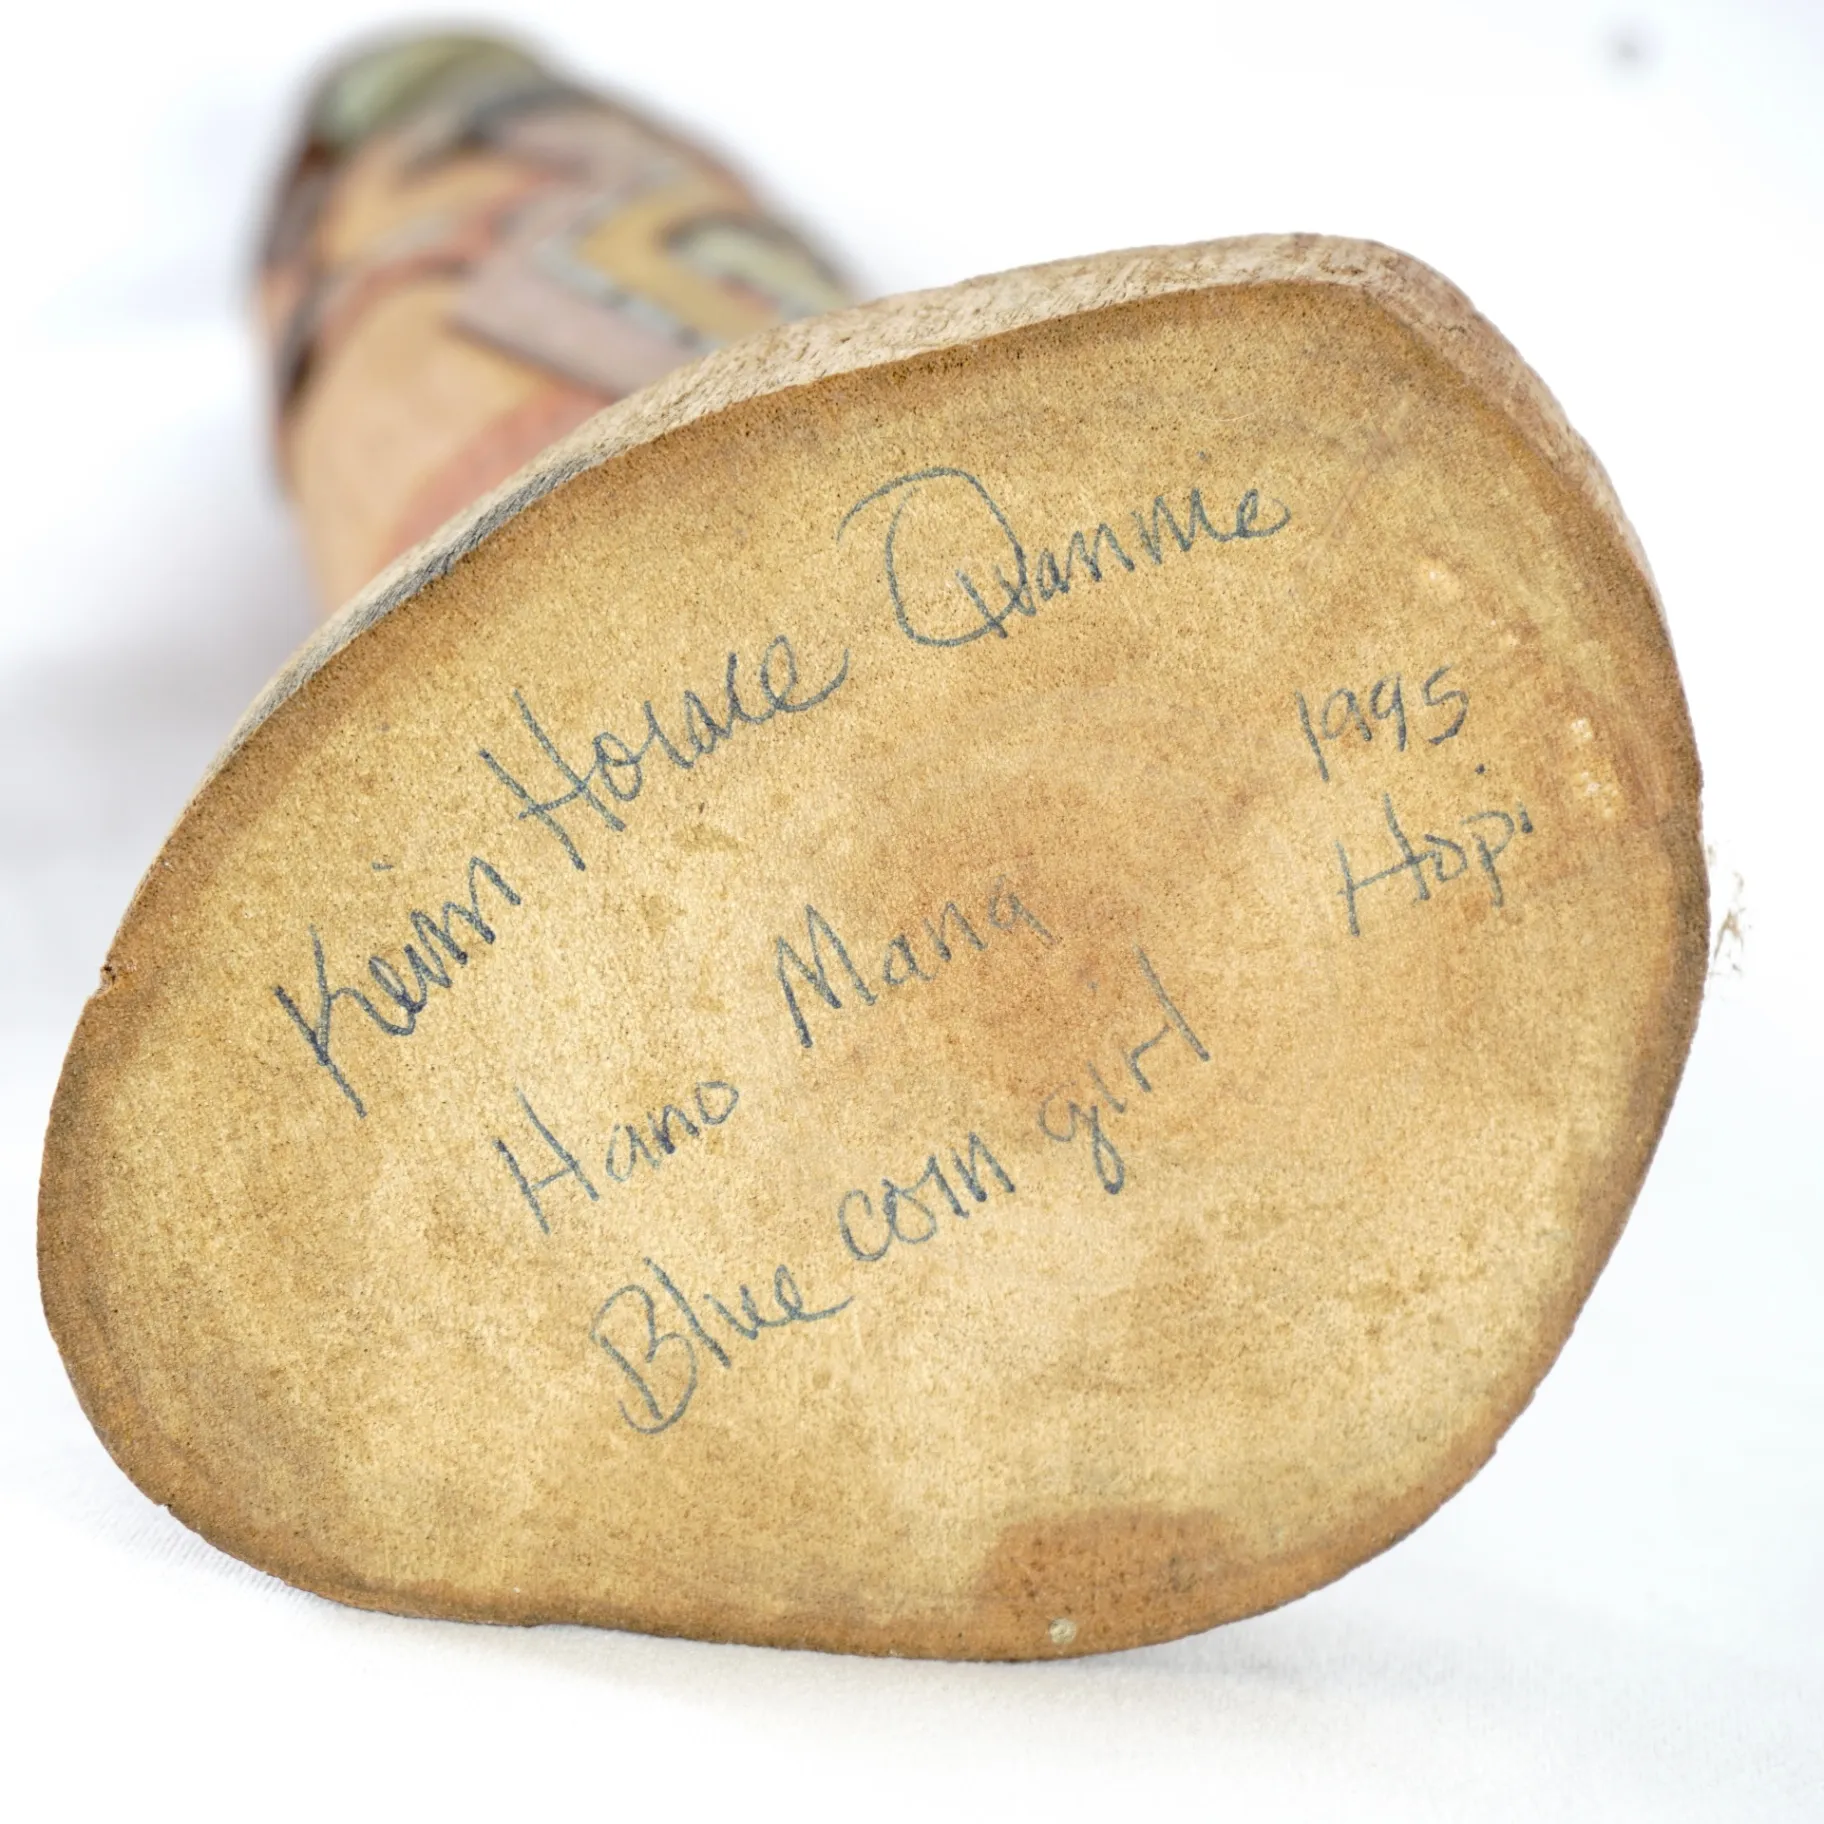 Kevin Horace Quannie
1995
Hopi
Hano Mana
Blue corn girl